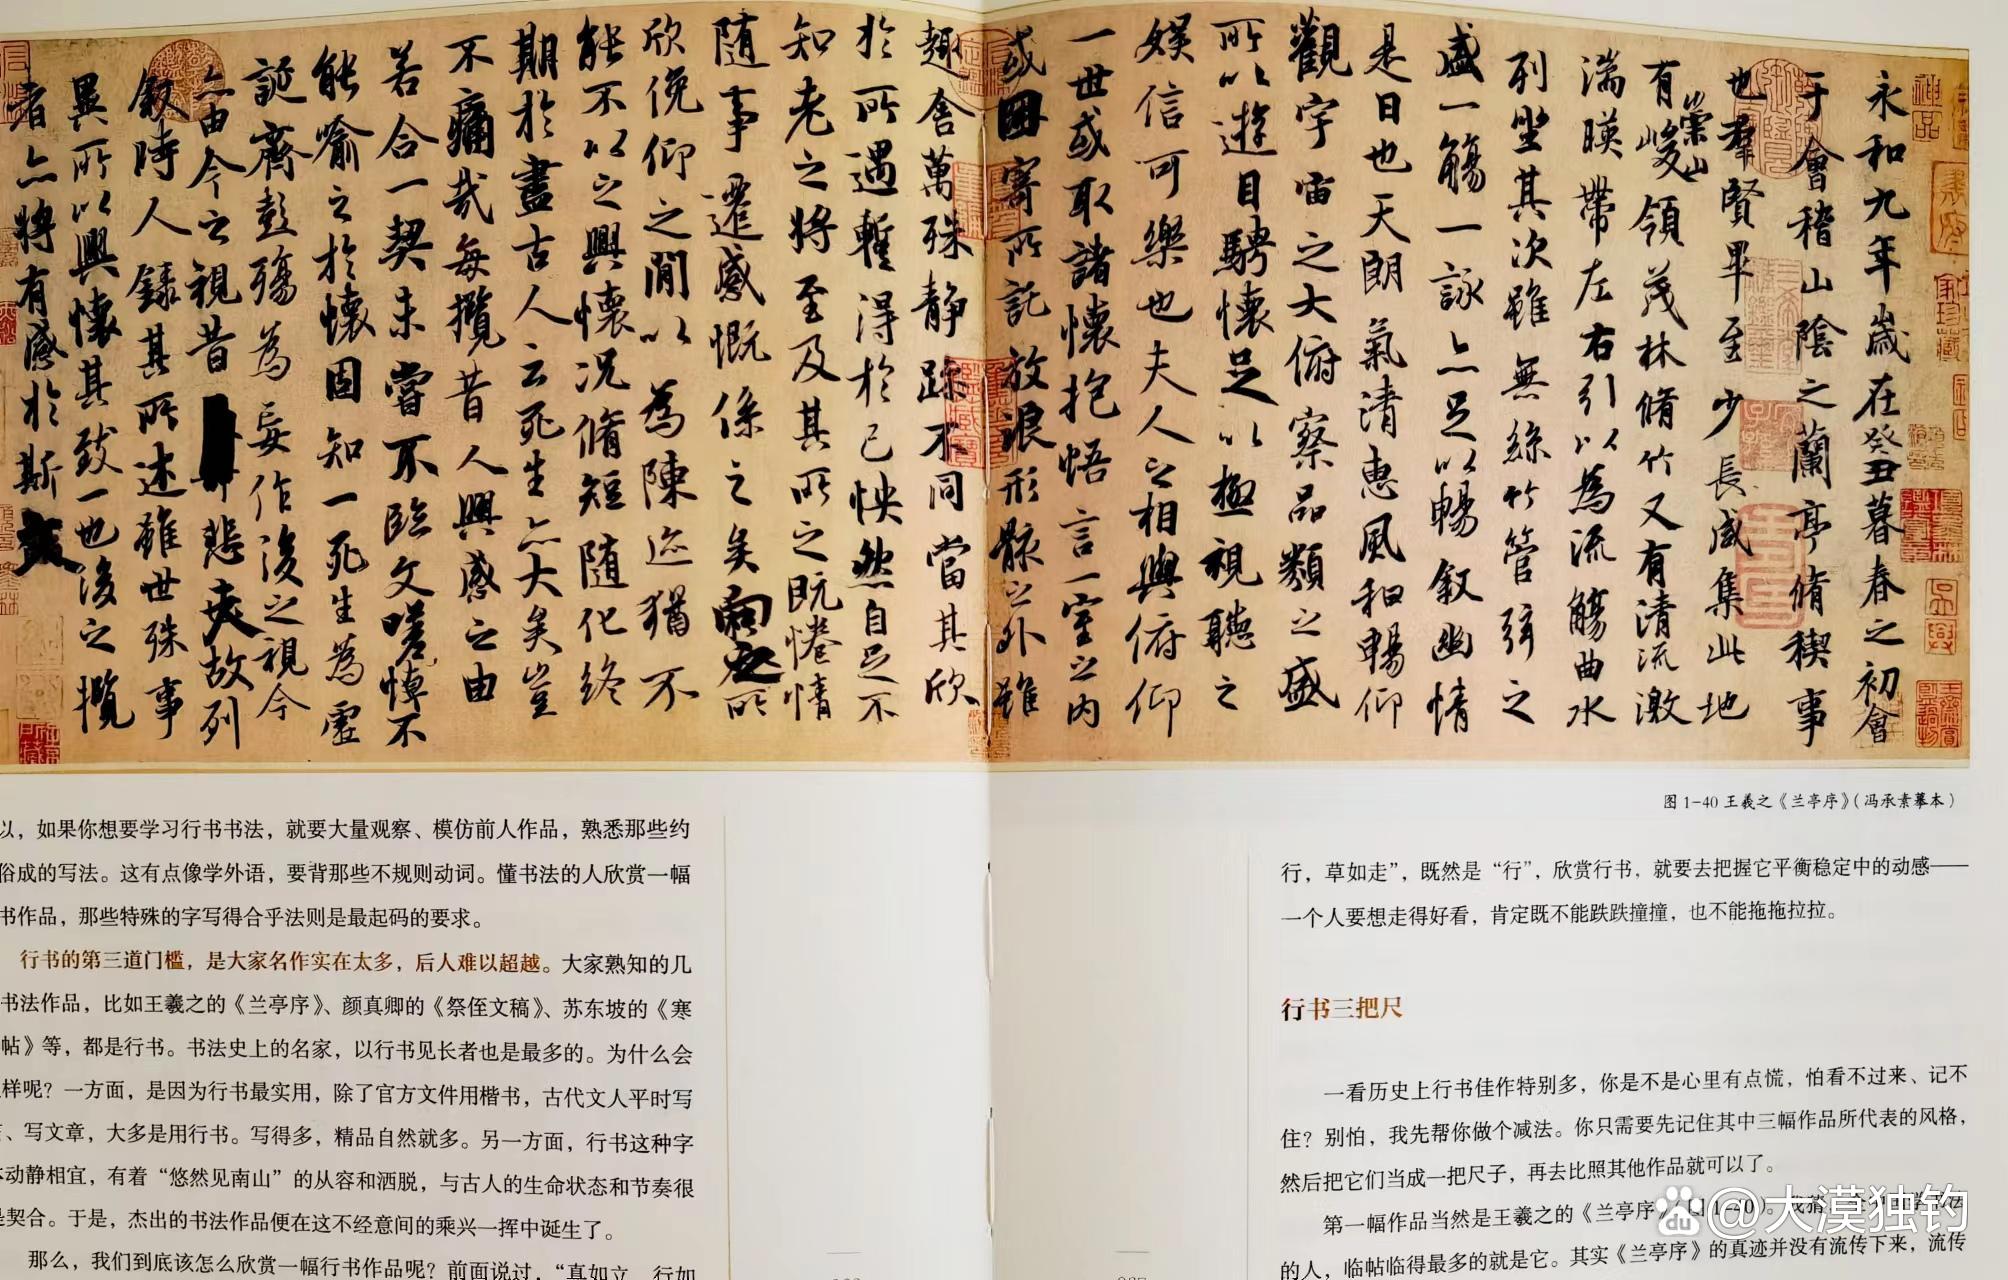 永和九年歲在癸丑暮春之初會
于會稽山陰之蘭亭脩稧事
也羣賢畢至少長咸集此地
有崇山峻領茂林脩竹又有清流激
湍暎帶左右引以為流觴曲水
列坐其次雖無絲竹管弦之
盛一觴一詠亦足以暢叙幽情
是日也天朗氣清惠風和暢仰
觀宇宙之大俯察品類之盛
所以遊目騁懷足以極視聽之
娛信可樂也夫人之相與俯仰
一世或取諸懷抱悟言一室之內
或因寄所託放浪形骸之外雖
趣舍萬殊静躁不同當其欣
於所遇暫得於己怏然自足不
知老之將至及其所之既惓情
隨事遷感慨係之矣向之所
欣俛仰之閒以為陳迹猶不
能不以之興懷況脩短隨化終
期於盡古人云死生亦大矣豈
不痛哉每攬昔人興感之由
若合一契未嘗不臨文嗟悼不
能喻之於懷固知一死生為虛
誕齊彭殤為妄作後之視今
亦由今之視昔悲夫故列
叙時人錄其所述雖世殊事
異所以興懷其致一也後之攬
者亦將有感於斯文
图1-40 王羲之《兰亭序》（冯承素摹本）
以，如果你想要学习行书书法，就要大量观察、模仿前人作品，熟悉那些约
俗成的写法。这有点像学外语，要背那些不规则动词。懂书法的人欣赏一幅
书作品，那些特殊的字写得合乎法则是最起码的要求。
行书的第三道门槛，是大家名作实在太多，后人难以超越。大家熟知的几
书法作品，比如王羲之的《兰亭序》、颜真卿的《祭侄文稿》、苏东坡的《寒
帖》等，都是行书。书法史上的名家，以行书见长者也是最多的。为什么会
样呢？一方面，是因为行书最实用，除了官方文件用楷书，古代文人平时写
、写文章，大多是用行书。写得多，精品自然就多。另一方面，行书这种字
动静相宜，有着“悠然见南山”的从容和洒脱，与古人的生命状态和节奏很
是契合。于是，杰出的书法作品便在这不经意间的乘兴一挥中诞生了。
那么，我们到底该怎么欣赏一幅行书作品呢？前面说过，“真如立，行如
行，草如走”，既然是“行”，欣赏行书，就要去把握它平衡稳定中的动感——
一个人要想走得好看，肯定既不能跌跌撞撞，也不能拖拖拉拉。
行书三把尺
一看历史上行书佳作特别多，你是不是心里有点慌，怕看不过来、记不
住？别怕，我先帮你做个减法。你只需要先记住其中三幅作品所代表的风格，
然后把它们当成一把尺子，再去比照其他作品就可以了。
第一幅作品当然是王羲之的《兰亭序》
的人，临帖临得最多的就是它。其实《兰亭序》的真迹并没有流传下来，流传
@大漠独钓